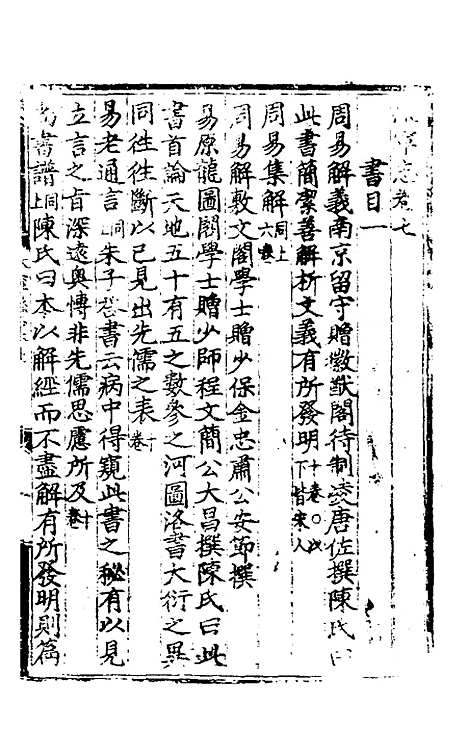 志卷七
書目一
周易解義南京留守贈徽猷閣待制凌唐佐撰陳氏曰
此書簡潔善解析文義有所發明十卷○以下皆宋人
周易集解同上六卷
周易解敷文閣學士贈少保金忠肅公安節撰
易原龍圖閣學士贈少師程文簡公大昌撰陳氏曰此
書首論天地五十有五之數參之河圖洛書大衍之異
同往往斷以己見出先儒之表十卷
易老通言同上朱子答書云病中得窺此書之秘有以見
立言之旨深遠奧博非先儒思慮所及十卷
尚書譜同上陳氏曰本以解經而不盡解有所發明則篇